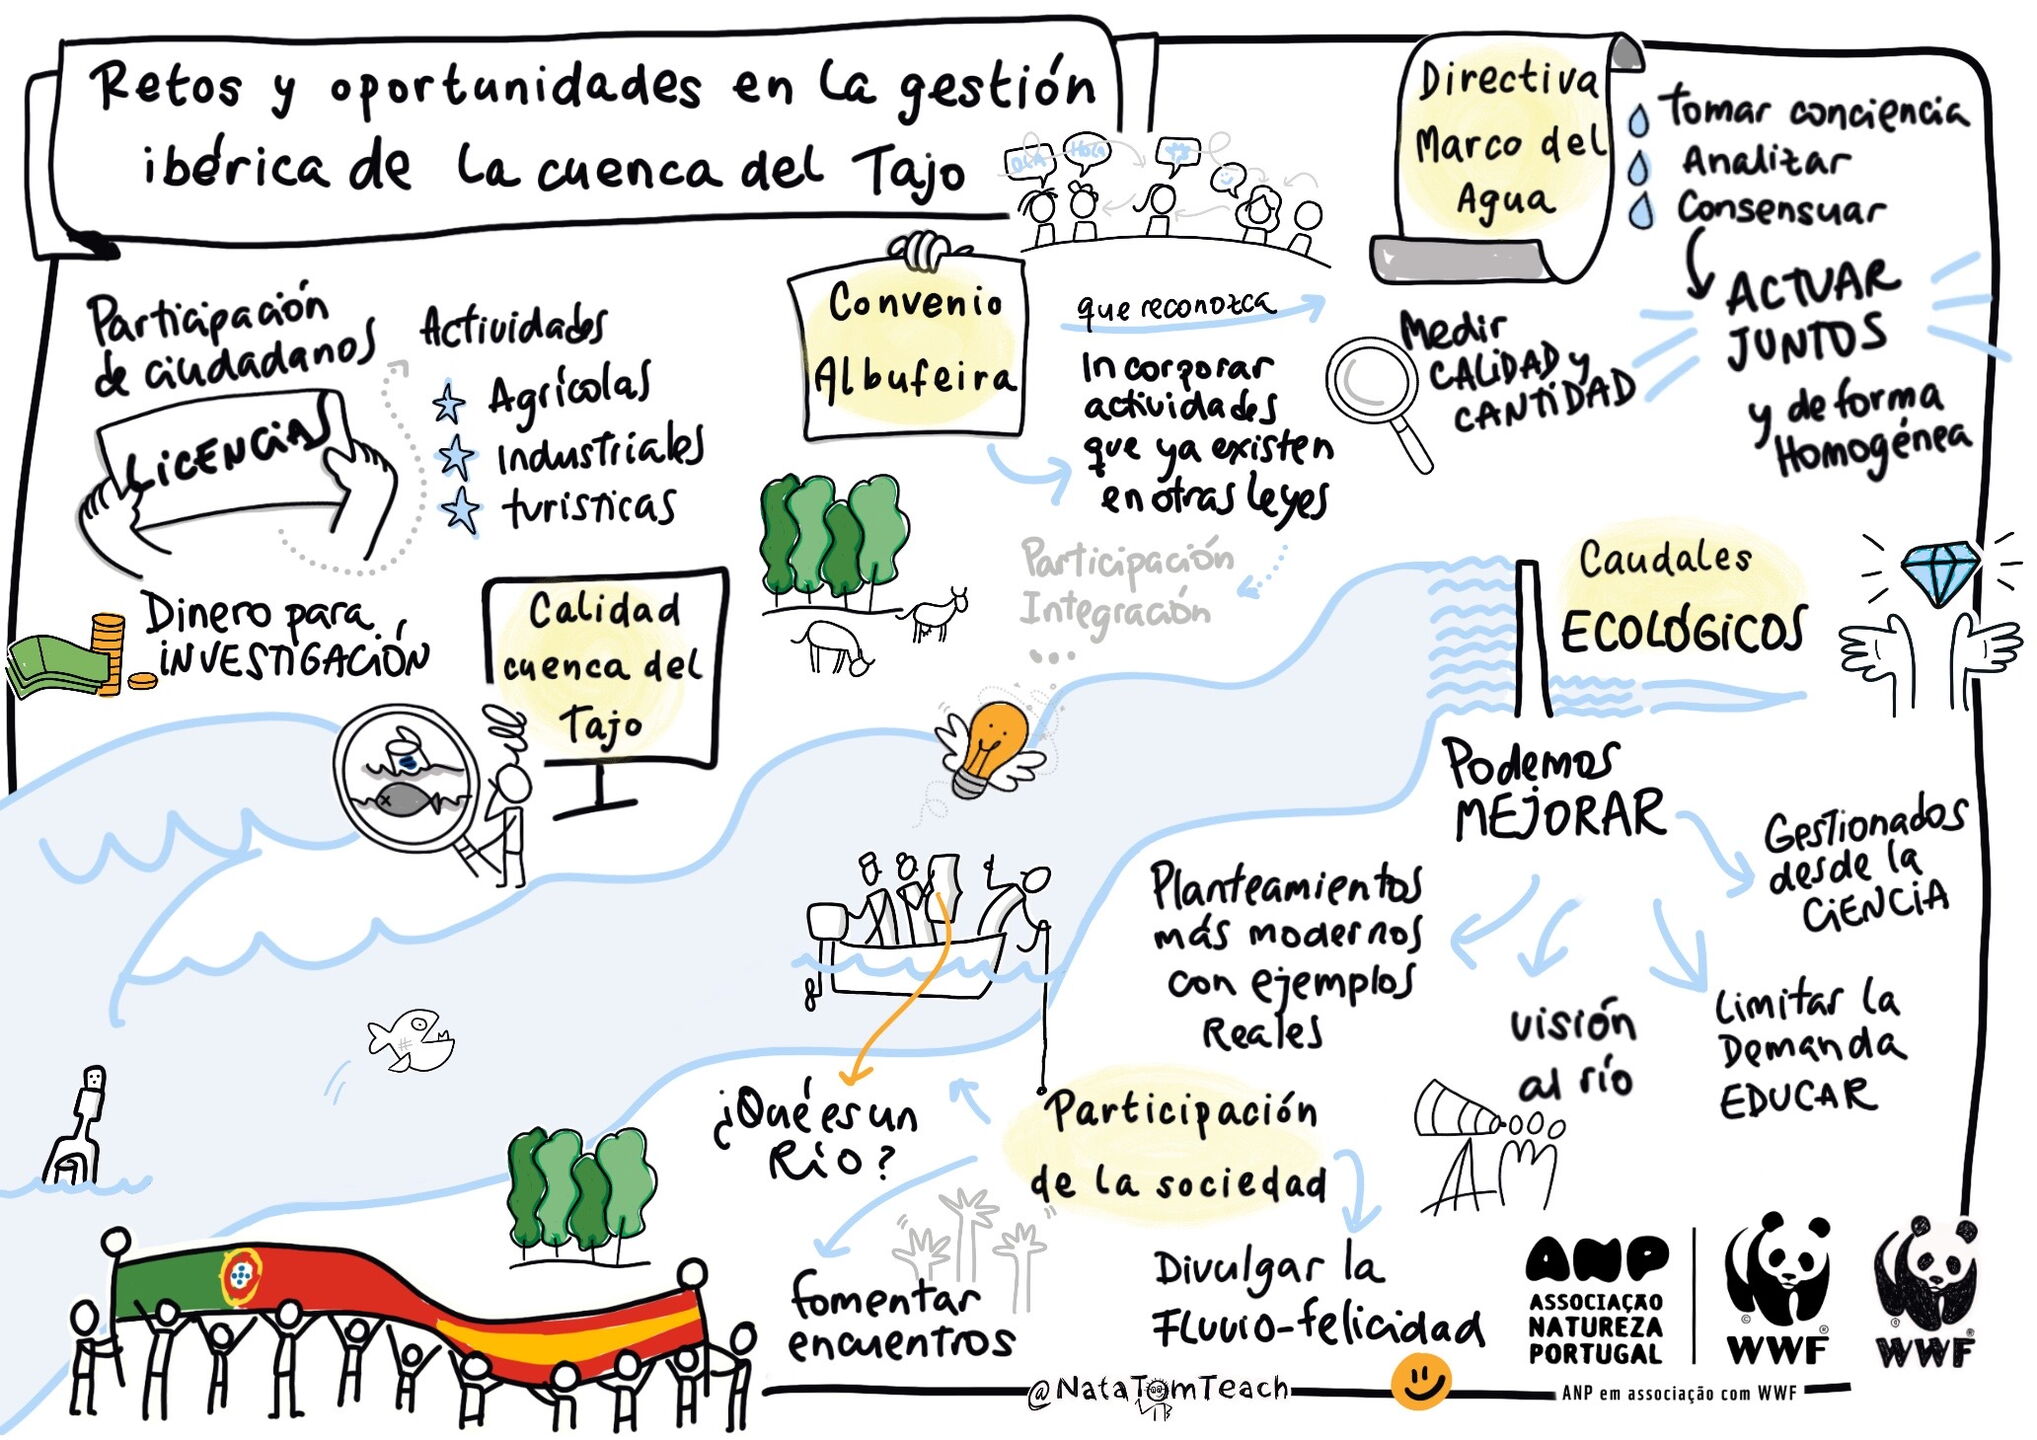 Retos y oportunidades en la gestión
ibérica de la cuenca del Tajo
OLÁ
Hola
Directiva
Marco del
Agua
Tomar conciencia
Analizar
Consensuar
ACTUAR
JUNTOS
y de forma
Homogénea
Medir
CALIDAD y
CANTIDAD
Convenio
Albufeira
que reconozca
Incorporar
actividades
que ya existen
en otras leyes
Participación
Integración
...
Participación
de ciudadanos
LICENCIAS
Actividades
Agrícolas
Industriales
turísticas
Dinero para
INVESTIGACIÓN
Calidad
cuenca del
Tajo
Caudales
ECOLÓGICOS
Podemos
MEJORAR
Gestionados
desde la
CIENCIA
Planteamientos
más modernos
con ejemplos
Reales
visión
al río
Limitar la
Demanda
EDUCAR
¿Qué es un
RÍO?
Participación
de la sociedad
fomentar
encuentros
Divulgar la
Fluvio-felicidad
@NataTomTeach
ANP
ASSOCIAÇÃO
NATUREZA
PORTUGAL
WWF
WWF
ANP em associação com WWF